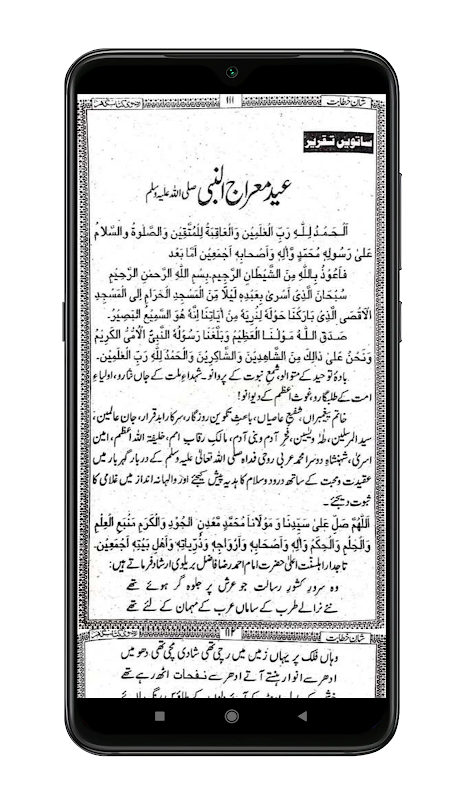 شان خطابت ۱۱۱ رضوی کتاب گھر
ساتویں تقریر
عید معراج النبی صلی اللہ علیہ وسلم
اَلْحَمْدُ لِلّٰهِ رَبِّ الْعٰلَمِیْنَ وَالْعَاقِبَةُ لِلْمُتَّقِیْنَ وَالصَّلٰوةُ وَالسَّلَامُ
عَلٰی رَسُوْلِهٖ مُحَمَّدٍ وَّاٰلِهٖ وَاَصْحَابِهٖ اَجْمَعِیْنَ اَمَّا بَعْد
فَاَعُوْذُ بِاللّٰهِ مِنَ الشَّیْطَانِ الرَّجِیْمِ. بِسْمِ اللّٰهِ الرَّحْمٰنِ الرَّحِیْمِ
سُبْحَانَ الَّذِیْ اَسْرٰی بِعَبْدِهٖ لَیْلًا مِّنَ الْمَسْجِدِ الْحَرَامِ اِلَی الْمَسْجِدِ
الْاَقْصَی الَّذِیْ بَارَکْنَا حَوْلَهٗ لِنُرِیَهٗ مِنْ اٰیَاتِنَا اِنَّهٗ هُوَ السَّمِیْعُ الْبَصِیْرُ.
صَدَقَ اللّٰهُ مَوْلٰنَا الْعَظِیْمُ وَبَلَّغَنَا رَسُوْلُهُ النَّبِیُّ الْاُمِّیُّ الْکَرِیْمُ
وَنَحْنُ عَلٰی ذٰلِکَ مِنَ الشَّاهِدِیْنَ وَالشَّاکِرِیْنَ وَالْحَمْدُ لِلّٰهِ رَبِّ الْعٰلَمِیْنَ.
بادۂ توحید کے متوالو، شمع نبوت کے پروانو۔ شہداءِ ملت کے جاں نثارو، اولیاءِ
امت کے طلبگارو، غوث اعظم کے دیوانو!
خاتم پیغمبراں، شفیع عاصیاں، باعث تکوین روزگار، سرکار ابد قرار، جان عالمین،
سید المرسلین، طٰہٰ و یٰسین، فخر آدم و بنی آدم، مالک رقاب امم، خلیفۃ اللہ اعظم، امین
اسریٰ، شہنشاہ دوسرا محمد عربی روحی فداہ صلی اللہ تعالیٰ علیہ وسلم کے دربار گہربار میں
عقیدت و محبت کے ساتھ درود و سلام کا ہدیہ پیش کیجئے اور والہانہ انداز میں غلامی کا
ثبوت دیجئے۔
اَللّٰهُمَّ صَلِّ عَلٰی سَیِّدِنَا وَ مَوْلَانَا مُحَمَّدٍ مَّعْدِنِ الْجُوْدِ وَالْکَرَمِ مَنْبَعِ الْعِلْمِ
وَالْحِلْمِ وَالْحِکَمِ وَاٰلِهٖ وَاَصْحَابِهٖ وَاَزْوَاجِهٖ وَذُرِّیَاتِهٖ وَاَهْلِ بَیْتِهٖ اَجْمَعِیْنَ.
تاجدار اہلسنت اعلیٰ حضرت امام احمد رضا فاضل بریلوی ارشاد فرماتے ہیں:
وہ سرور کشور رسالت جو عرش پر جلوہ گر ہوئے تھے
نئے نرالے طرب کے ساماں عرب کے مہمان کے لئے تھے
شان خطابت ۱۱۲ رضوی کتاب گھر
وہاں فلک پر یہاں زمیں میں رچی تھی شادی مچی تھی دھومیں
ادھر سے انوار ہنستے آتے ادھر سے نفحات اٹھ رہے تھے